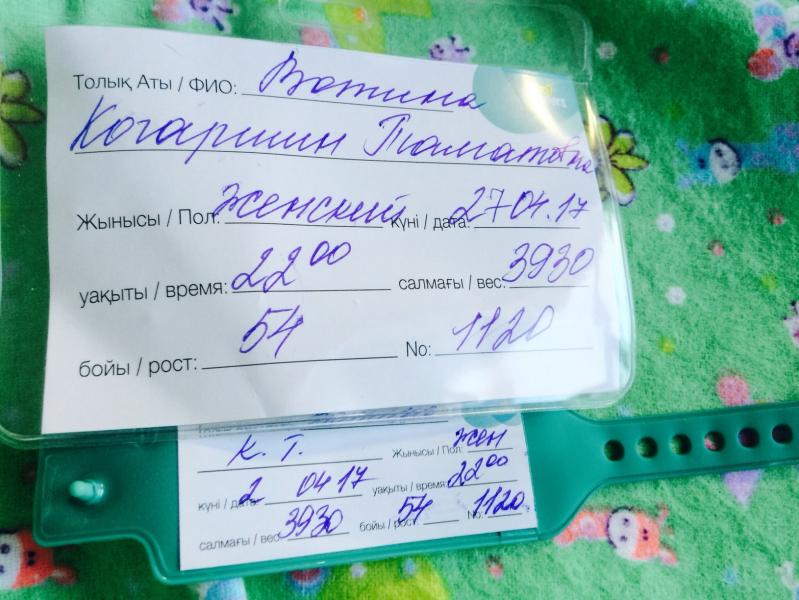 Толық Аты / ФИО: Вотина
Когаршин Таматовна
Жынысы / Пол: Женский күні / дата: 27 04.17
уақыты / время: 22 00 салмағы / вес: 3930
бойы / рост: 54 No: 1120
К. Т. Жынысы / Пол: жен
күні / дата: 2 04 17 уақыты / время: 22 00
салмағы / вес: 3930 бойы / рост: 54 No: 1120